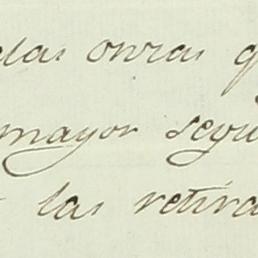 las onras q
mayor segu
las retira